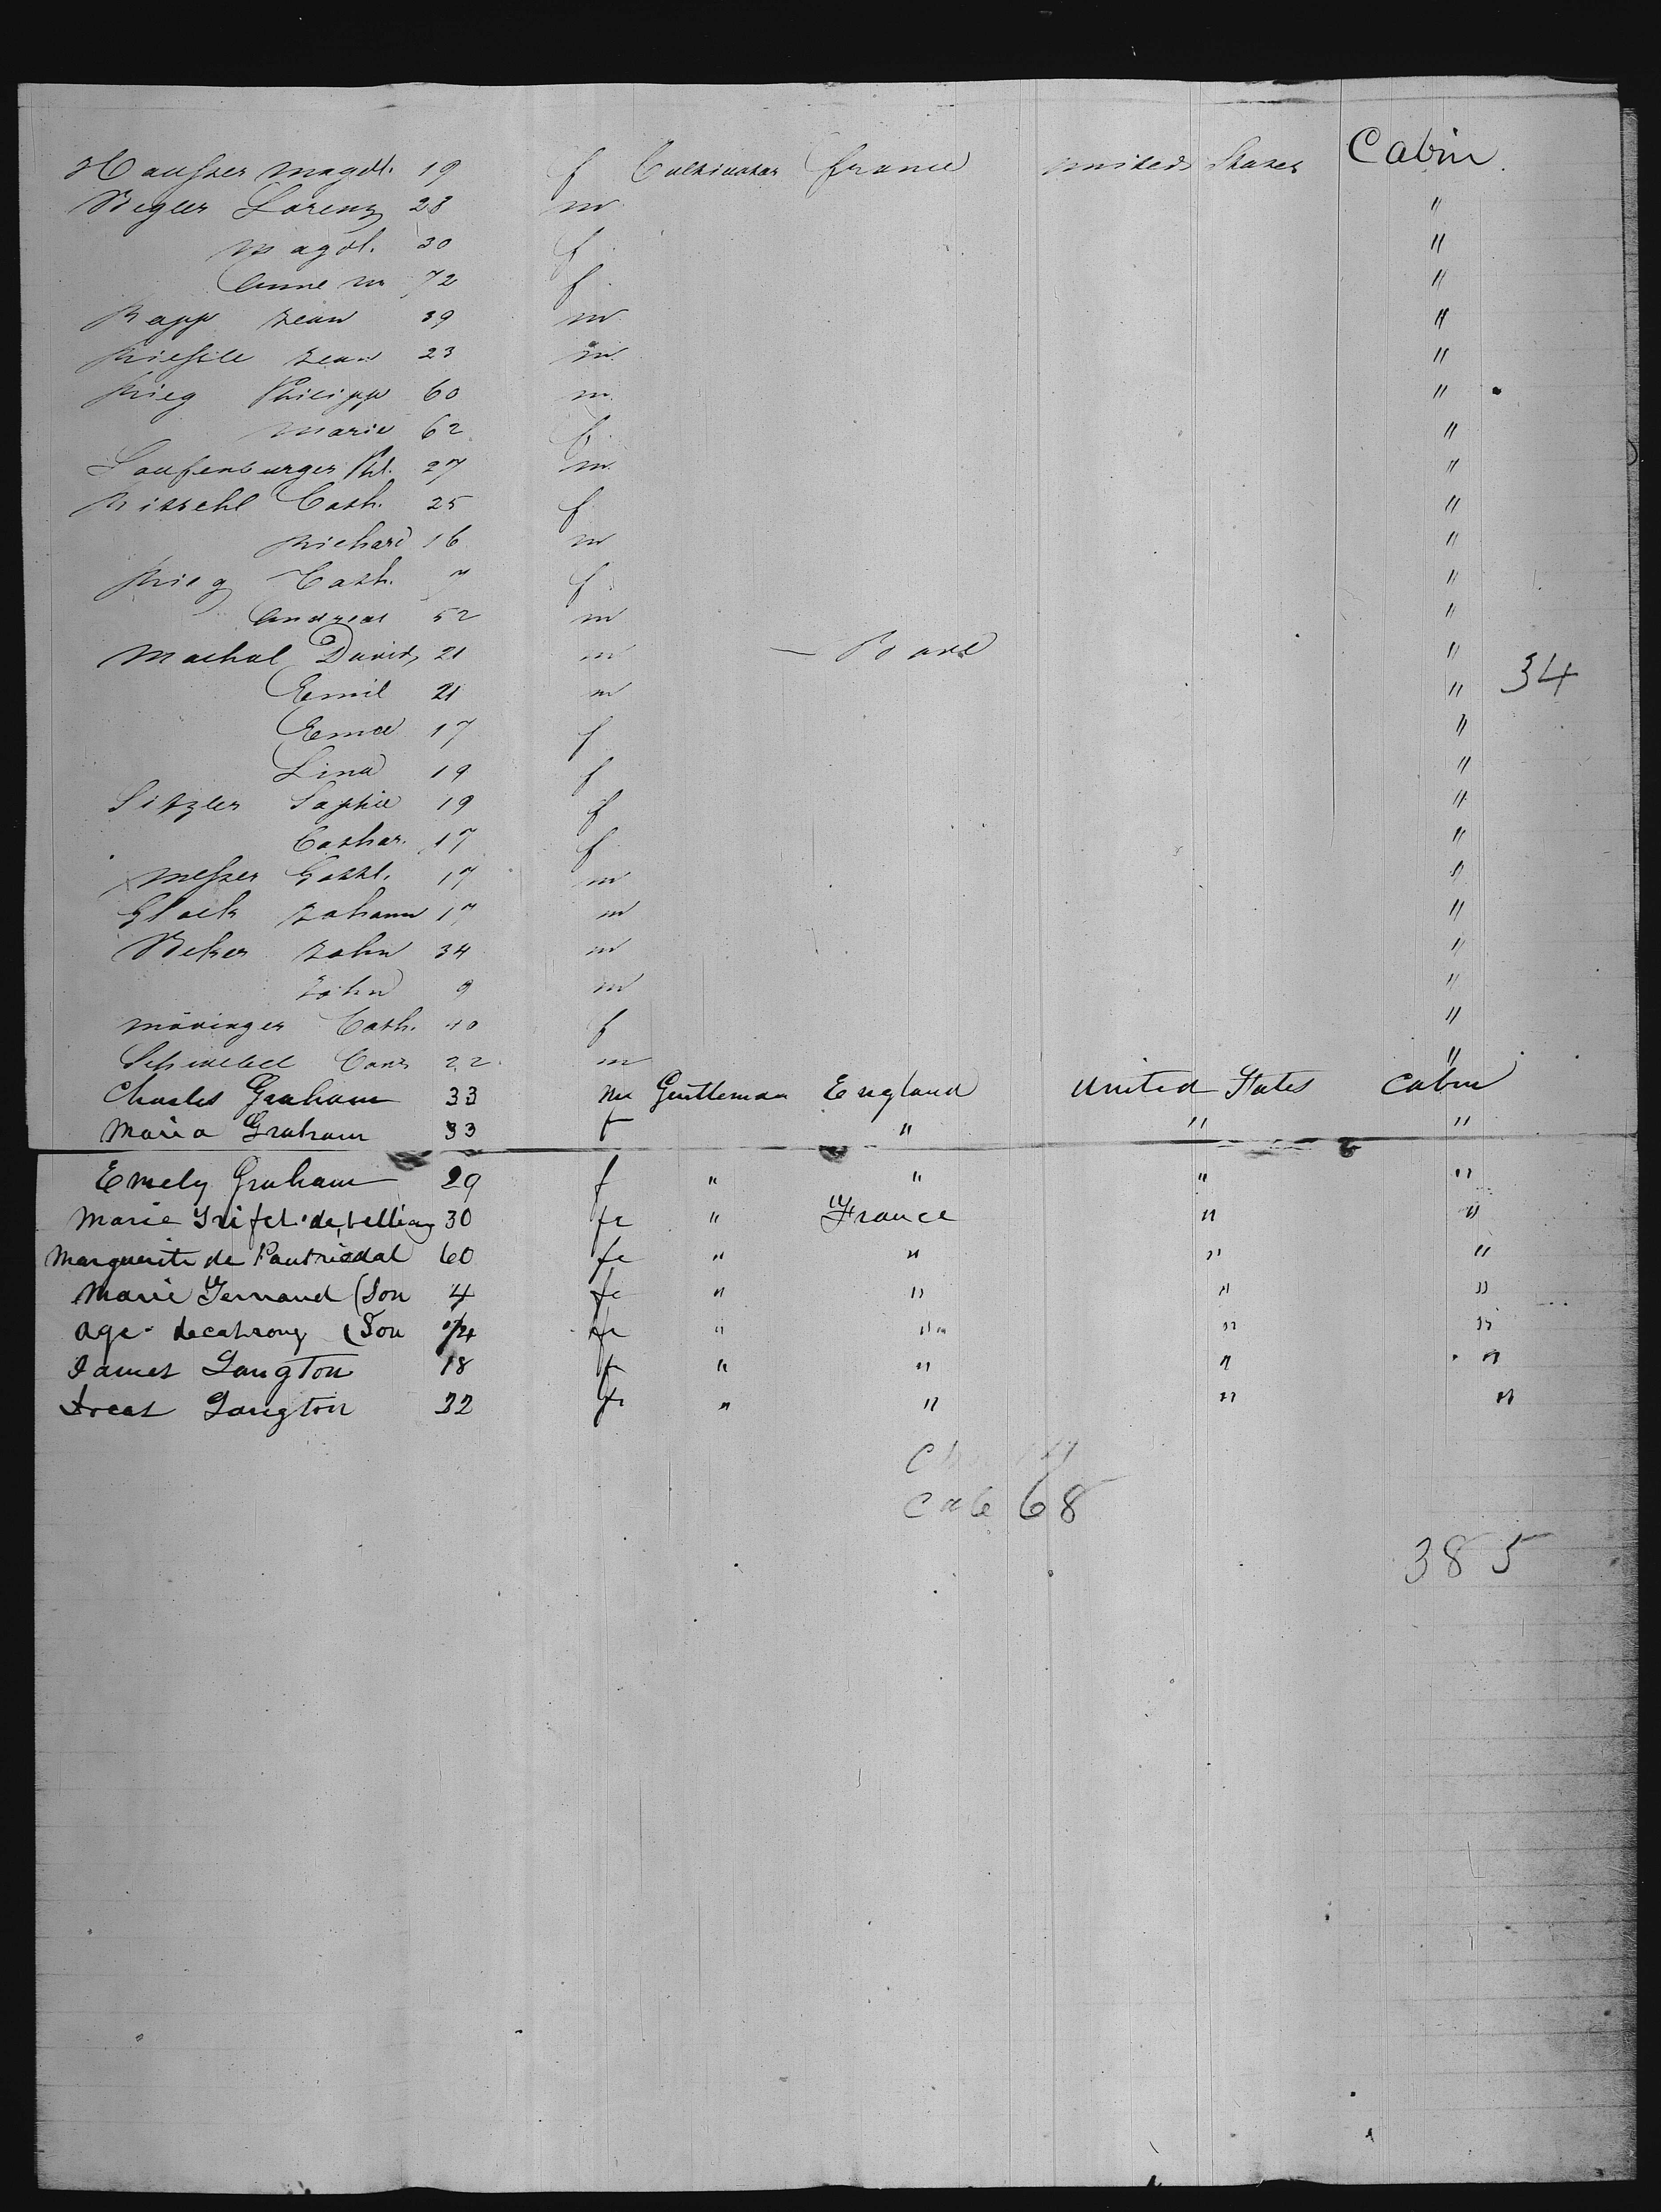 Hausser Magdl. 19 f Cultivator France United States Cabin
Wegler Lorenz 28 m "
Magdl. 30 f "
Anne M 72 f "
Rapp Jean 39 m "
Jean 23 m "
Krieg Philipp 60 m "
Marie 62 f "
Laufenburger Phl. 27 m "
Cath. 25 f "
Richard 16 m "
Krieg Cath. 7 f "
Andreas 52 m "
Machol David 21 m — "
Emil 21 m " 34
Emma 17 f "
Lina 19 f "
Sitzler Sophie 19 f "
Cathar. 17 f "
Messer Gottl. 17 m "
Glock Johann 17 m "
Weker John 34 m "
John 9 m "
Möringer Cath. 40 f "
Schwebel Conr 22 m "
Charles Graham 33 m Gentleman England United States Cabin
Maria Graham 33 f " " "
Emely Graham 29 f " " " "
Marie 30 fe " France " "
Marguerite de 60 fe " " " "
Marie Fernand (Son 4 fe " " " "
age (Son fe " " " "
James Langton 18 f " " " "
Langton 32 fe " " " "
Cab 68
385